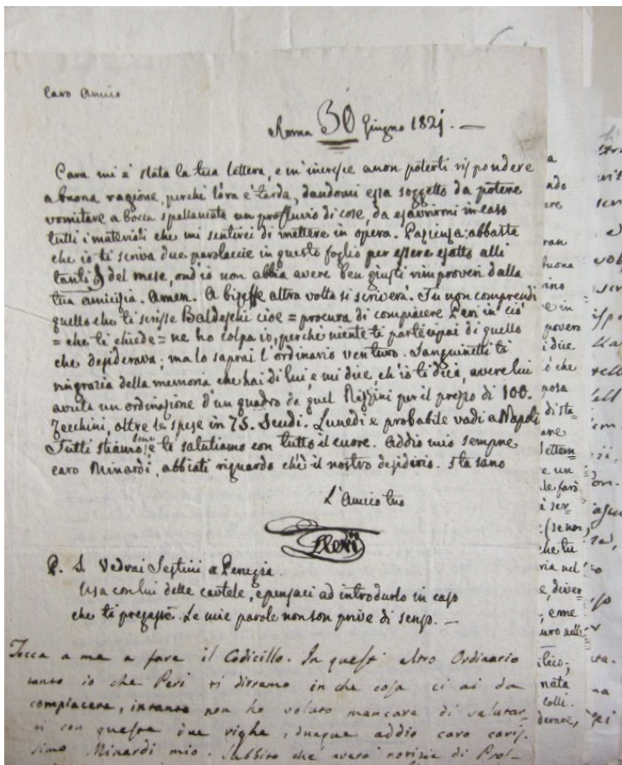 Caro Amico
Roma 30 Giugno 1821. —
Cara mi è stata la tua lettera, e m'incresce a non poterti rispondere
a buona ragione, perchè l'ora è tarda, daudomi essa soggetto da poterne
vomitare a bocca spallancata un profluvio di cose, da esaurirmi in caso
tutti i materiali che mi sentirei di mettere in opera. Pazienza: abbasta
che io ti scriva due parolaccie in questo foglio per essere esatto alli
tanti del mese, ond'io non abbia avere ben giusti rimproveri dalla
tua amicizia. Amen. A bizeffe altra volta si scriverà. Tu non comprendi
quello che ti scrisse Baldeschi cioe = procura di compiacere Peri in ciò
= che ti chiede = ne ho colpa io, perchè niente ti partecipai di quello
che desiderava; ma lo saprai l'ordinario venturo. Sanguinetti ti
ringrazia della memoria che hai di lui, e mi dice, ch'io ti dica, avere lui
avuta un ordinazione d'un quadro da quel Pizzini per il prezzo di 100.
Zecchini, oltre le spese in 75. Scudi. Lunedi e probabile vadi a Napoli
Tutti stiamo bene e ti salutiamo con tutto il cuore. Addio mio sempre
caro Minardi, abbiati riguardo ch'è il nostro desiderio. Sta sano
L'Amico tuo
Peri
P. S. Vedrai Sestini a Perugia.
Usa con lui delle cautele, e pensaci ad introdurlo in caso
che ti pregasse. Le mie parole non son prive di senso. —
Tocca a me a fare il Codicillo. In quest altro Ordinario
tanto io che Peri ti diremo in che cosa ci ai da
compiacere, intanto non ho voluto mancare di salutar
ti con queste due righe, dunque addio caro caris
simo Minardi mio. Subbito che averò notizie di Prof-